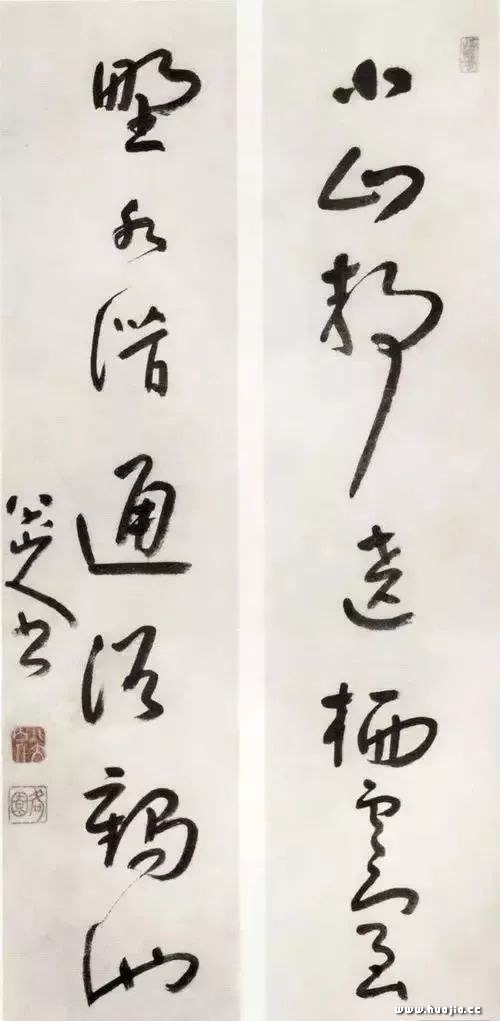 小山靜遶栖雲室
野水潛通浴鶴池
八大山人書
www.huajia.cc